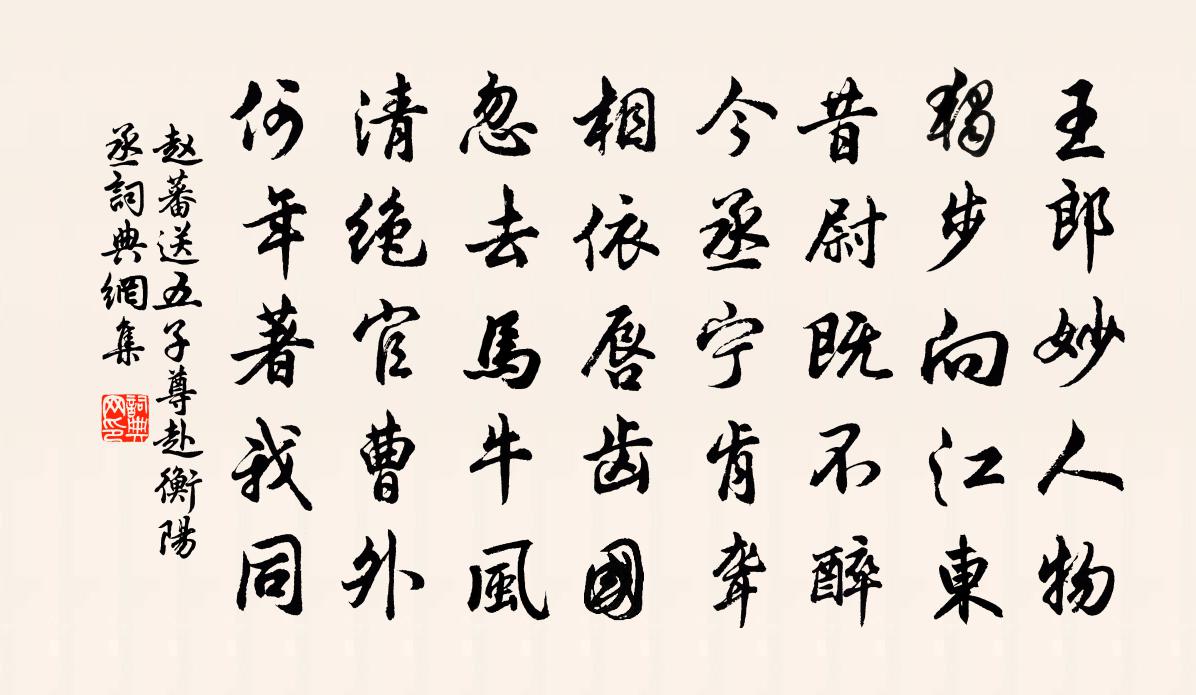 王郎妙人物
獨步向江東
昔尉既不醉
今丞宁肯聋
相依唇齿國
忽去馬牛風
清绝官曹外
何年著我同
赵蕃送五子尊赴衡陽
丞詞典網集
詞典网印